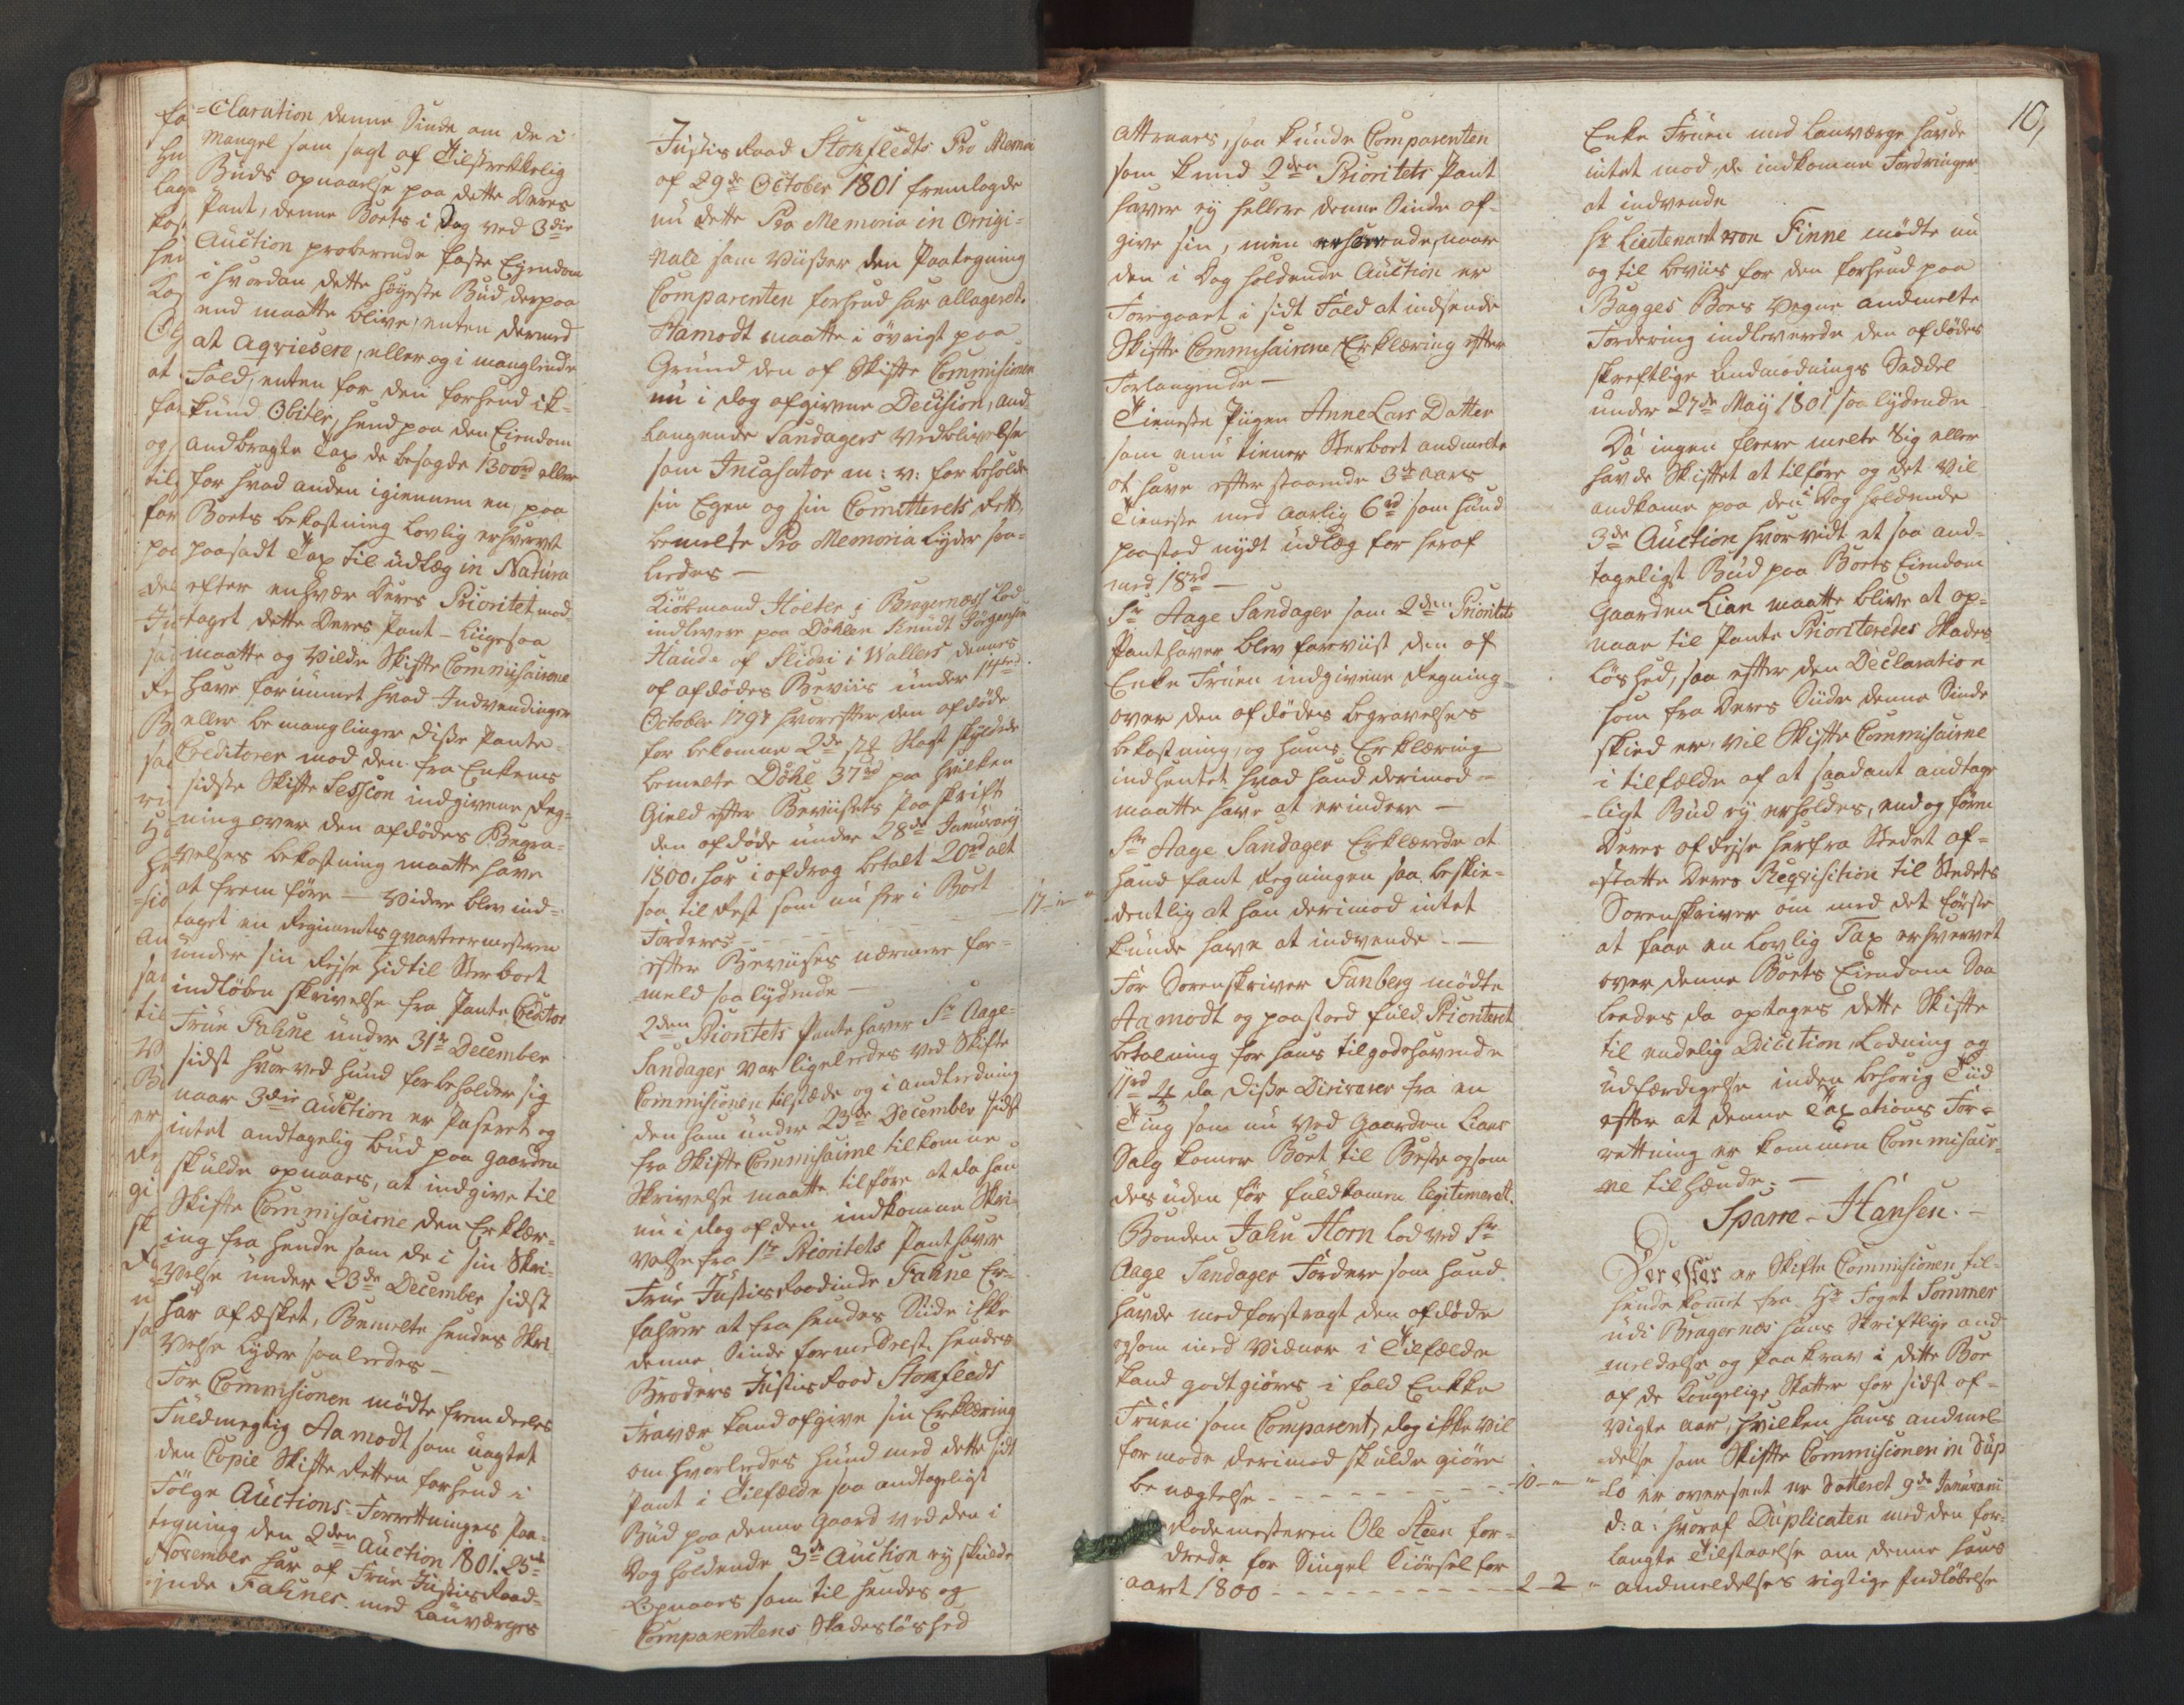 =Claration denne Sinde om de i
Mangel som sagt af Tilstrekkelig
Buds opnaaelse paa dette Deres
Pant, denne Boets i Dag ved 3die
Auction proberende faste Eiendom
i hvordan dette høyeste Bud, derpaa
end maatte blive, enten dermed
at aqviesere, eller og i manglende
Fald, enten for den forhend ik-
kund Obiter, hend paa den Eiendom
andbragte Tax de besagde 1300rd eller
for hvad anden igiennem en paa
Boets bekostning lovlig erhvervet
paasadt Tax til udlæg in Natura
efter enhver Deres Prioritet mod-
taget dette Deres Pant - Liigesaa
maatte og Vilde Skifte Commissairerne
have fornummet hvad Indvendinger
eller bemanglinger disse Pante-
Creditorer mod den fra Enkens
sidste Skifte Session indgivene Reg-
ning over den afdødes Begra-
velses bekostning maatte have
at frem føre - Videre blev ind-
taget en Regiments qvarteermesteren
under sin Reyse hidtil Sterboet
indløben skrivelse fra Pante Creditor
Frue Fahne under 31te December
sidst hvorved hund forbeholder sig
naar 3die auction er Paseret og
intet andtagelig bud paa gaarden
skulde opnaaes, at indgive til
Skifte Commissairne den Erklær-
ing fra hende som de i sin Skri-
velse under 23de December sidst
har afæsket, Bemelte hendes Skri-
velse lyder saaledes -
For Commisionen mødte fremdeeles
Fuldmegtig Aamodt som uagtet
den Copie Skifte Retten forhend i
Følge Auctions-Forretningens Paa-
tegning den 2den Auction 1801. 25de
November har af Frue Justits Raad-
inde Fahnes med Lauværges
Justis Raad Stoxfledts Pro Memori
af 29de October 1801 fremlagde
nu dette Pro Memoria in Orrigi-
nale som Viisser den Paategning
Comparenten forhend har allageret.
Aamodt maatte i øvrigt paa
Grund den af Skifte Commisionen
nu i dag afgivene Decision, and-
langende Sandagers vedblivelse
som Incasator m: v: forbeholde
sin Egen og sin Comitterets Rett,
bemelte Pro Memoria Lyder saa-
ledes -
Kiøbmand Holter i Bragernæss Lod
indlevere paa Døhlen Knudt Jørgensen
Hande af Slidri i Walders dennes
af afdødes Beviis under 14de
October 1797 hvorefter den afdøde
for bekomne 2de st Slagt skyldede
bemelte Døhl 37rd paa hvilken
Gield efter Beviisets Paaskrift
den afdøde under 28de Januarij
1800. har i afdrag betalt 20rd alt
saa til Rest som nu her i Boet
Fordres - - - 17 - " - "
efter Beviises nærmere for-
meld saalydende -
2den Prioritets Panthaver Sr Aage
Sandager var ligeledes ved Skifte
Commisionen tilstæde og i andledning
den ham under 23de December sidst
fra Skifte Commisairne tilkomne
Skrivelse maatte tilføre at da han
nu i dag af den indkomne Skri-
velse fra 1te Prioritets Panthaver
Frue Justis Raadinde Fahne Er-
fahrer at fra hendes Siide ikke
denne Sinde formedelst hendes
Broders Justis Raad Stoxfledts
Fravær kand afgive sin Erklæring
om hvorledes hund med dette sidt
Pant i Tilfælde saa andtageligt
Bud paa denne Gaard ved den i
Dag holdende 3de Auction ey skulde
Opnaaes som til hendes og
Comparentens Skadesløshed
10,
attraaes, saa kunde Comparenten
som kund 2den Prioritets Pant
haver ey hellere denne Sinde af-
give sin, men naar
den i Dag holdende Auction er
Foregaaet i sidt Fald at indsende
Skifte Commisairene Erklæring efter
Forlangende -
Tieneste Piigen Anne Lars Datter
som enu tiener Sterboet andmelte
at have efterstaaende 3de aars
Tieneste med aarlig 6rd som hund
paastod nydt udlæg for heraf
med 18rd -
Sr Aage Sandager som 2den Prioritets
Panthaver blev foreviist den af
Enke Fruen indgivene Regning
over den afdødes begravelses
bekostning, og hans Erklæring
indhentet hvad hand derimod
maatte have at erindere -
Sr Aage Sandager Erklærede at
hand fant Regningen saa beskie-
dentlig at han derimod intet
kunde have at indvende. -
For Sorenskriver Fanberg mødte
Aamodt og paastod fuld Prioriteret
betalning for hans tilgodehavende
11rd 4 da disse Dirivarer fra en
Ting som nu ved Gaarden Lians
Salg komer Boet til Beste og som
desuden før fuldkomen legitimeret.
Bonden Jahn Horn lod ved Sr
Aage Sandager Fordere som hand
havde med forstragt den afdøde
og som med Vidner i Tilfælde
kand godtgiøres i fald Enkke
Fruen som Comparent, dog ikke vil
formode derimod skulde giøre
benægtelse - - - 10 - " - "
Rodemesteren Ole Steen for-
drede for Singel Kiørsel for
aaret 1800 - - - 2 - 2 - "
Enke Fruen med Lauværge havde
intet mod de indkomne Fordringer
at indvende
Hr Lieutenant von Finne mødte nu
og til beviis for den forhend paa
Bagges Boes Vegne andmelte
Fordering indleverede den afdødes
skreftlige Andmodnings Seddel
under 27de Maij 1801 saa lydende
Da ingen flerre melte Sig eller
havde Skiftet at tilføre og det vil
andkome paa den i Dag holdende
3de Auction hvorvidt et saa and-
tageligt Bud paa Boets Eiendom
Gaarden Lian maatte blive at op-
naae til Pante Prioriteredes Skades
løshed, saa efter den Declaration
som fra Deres Siide denne Sinde
skied er, vil Skifte Commisairne
i tilfælde af at saadant andtage
ligt Bud ey erholdes, end og førend
Deres afrejse herfra Stedet af-
fatte Deres Reqvisition til Stedets
Sorenskriver om med det første
at faae en lovlig Tax erhvervet
over denne Boets Eiendom Saa
ledes da optages dette Skifte
til endelig Dicition, Lodning og
udfærdigelse inden behørig Tiid
efter at denne Taxations For-
rettning er kommen Commisair-
ne tilhænde. -
Sparre - Hansen. -
Derefter er Skifte Commisionen til-
hende kommet fra Hr Foget Sommer
udi Bragernæs hans Skriftlige and
meldelse og Paakrav i dette Boe
af de Kongelige Skatter for sidst af-
vigte aar, hvilken hans andmel-
delse som Skifte Commisionen in Dup
lo er oversent er Datteret 9de Januarii
d: a: hvoraf Duplicaten med den for-
langte Tilstaaelse om denne hans
andmeldelses rigtige Indløbelse